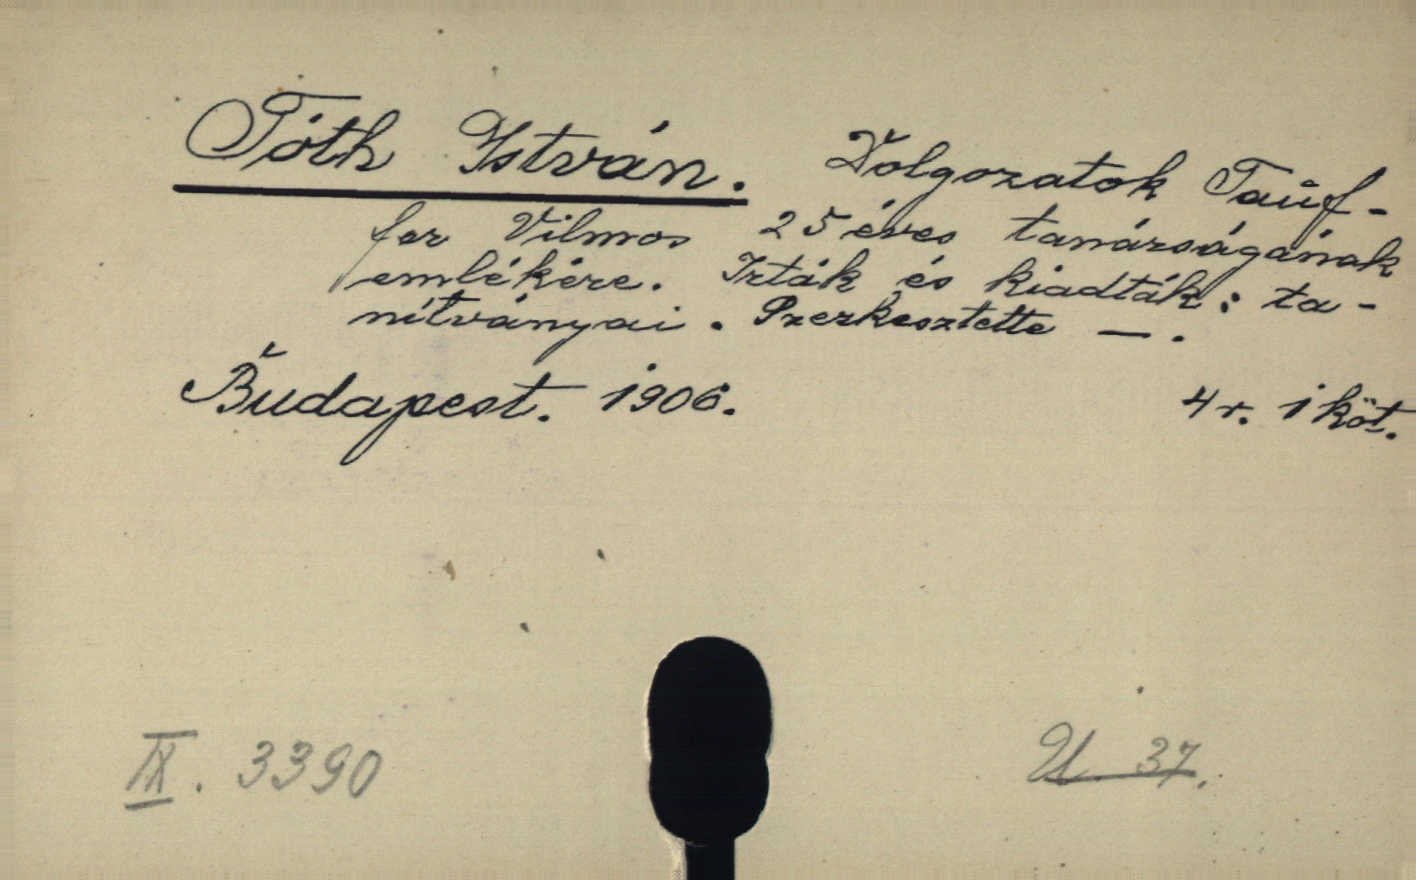 Tóth István. Dolgozatok Tauf-
fer Vilmos 25 éves tanárságának
emlékére. Irták és kiadták: ta-
nítványai. Szerkesztette —.
Budapest. 1906. 4 r. 1 köt.
IX. 3390 U 37.